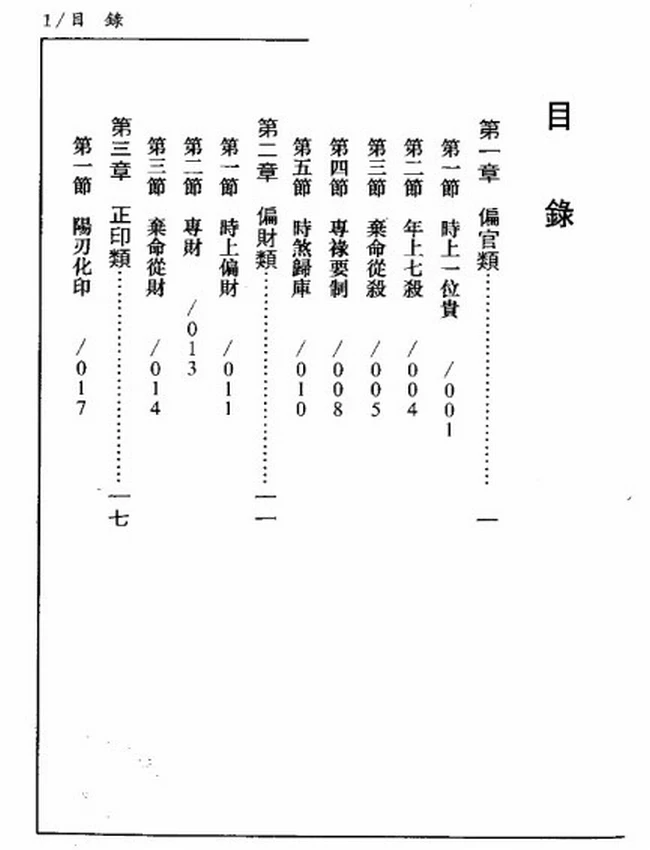 1/目 錄
目 錄
第一章 偏官類……………………一
第一節 時上一位貴 /001
第二節 年上七殺 /004
第三節 棄命從殺 /005
第四節 專祿要制 /008
第五節 時煞歸庫 /010
第二章 偏財類……………………一一
第一節 時上偏財 /011
第二節 專財 /013
第三節 棄命從財 /014
第三章 正印類……………………一七
第一節 陽刃化印 /017